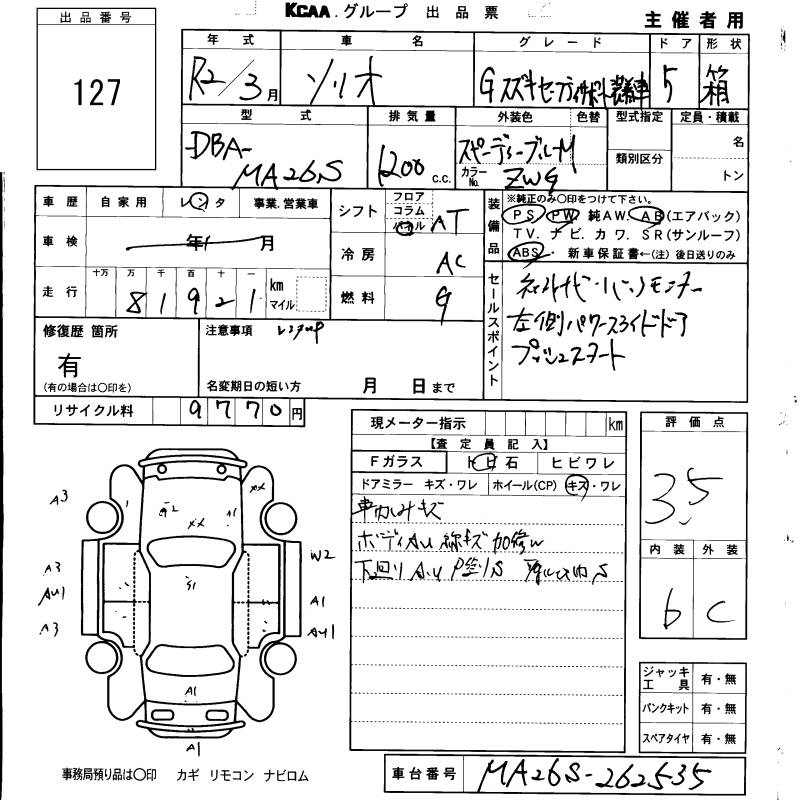 KCAA.グループ 出品票
主催者用
出品番号
127
年式 車名 グレード ドア 形状
R2/3月 ソリオ Gスズキセーフティサポート装着車 5 箱
型式 排気量 外装色 色替 型式指定 定員・積載
DBA-MA26S 1200 c.c. スピーディーブルーM 名
カラーNo. ZWG 類別区分 トン
車歴 自家用 レンタ 事業.営業車
車検 年 月
走行 十万 万 千 百 十 一 km マイル
8 1 9 2 1
シフト フロア コラム パネル AT
冷房 AC
燃料 G
装備品 ※純正のみ〇印をつけて下さい。
PS PW 純AW. AB(エアバック)
TV. ナビ. カワ. SR(サンルーフ)
ABS. 新車保証書←(注)後日送りのみ
セールスポイント
左側パワースライドドア
プッシュスタート
修復歴 箇所
有
(有の場合は〇印を)
注意事項 レンタup
名変期日の短い方 月 日まで
リサイクル料 9770円
現メーター指示 km
【査定員記入】
Fガラス トビ石 ヒビワレ
ドアミラー キズ・ワレ ホイール(CP) キズ・ワレ
ボディAU 線キズ 加修w
評価点
3.5
内装 外装
b C
ジャッキ工具 有・無
パンクキット 有・無
スペアタイヤ 有・無
A3
xx
G2
A1
xx
A3
AU1
A3
S1
W2
A1
AU1
A1
A1
事務局預り品は〇印 カギ リモコン ナビロム
車台番号 MA26S-262535